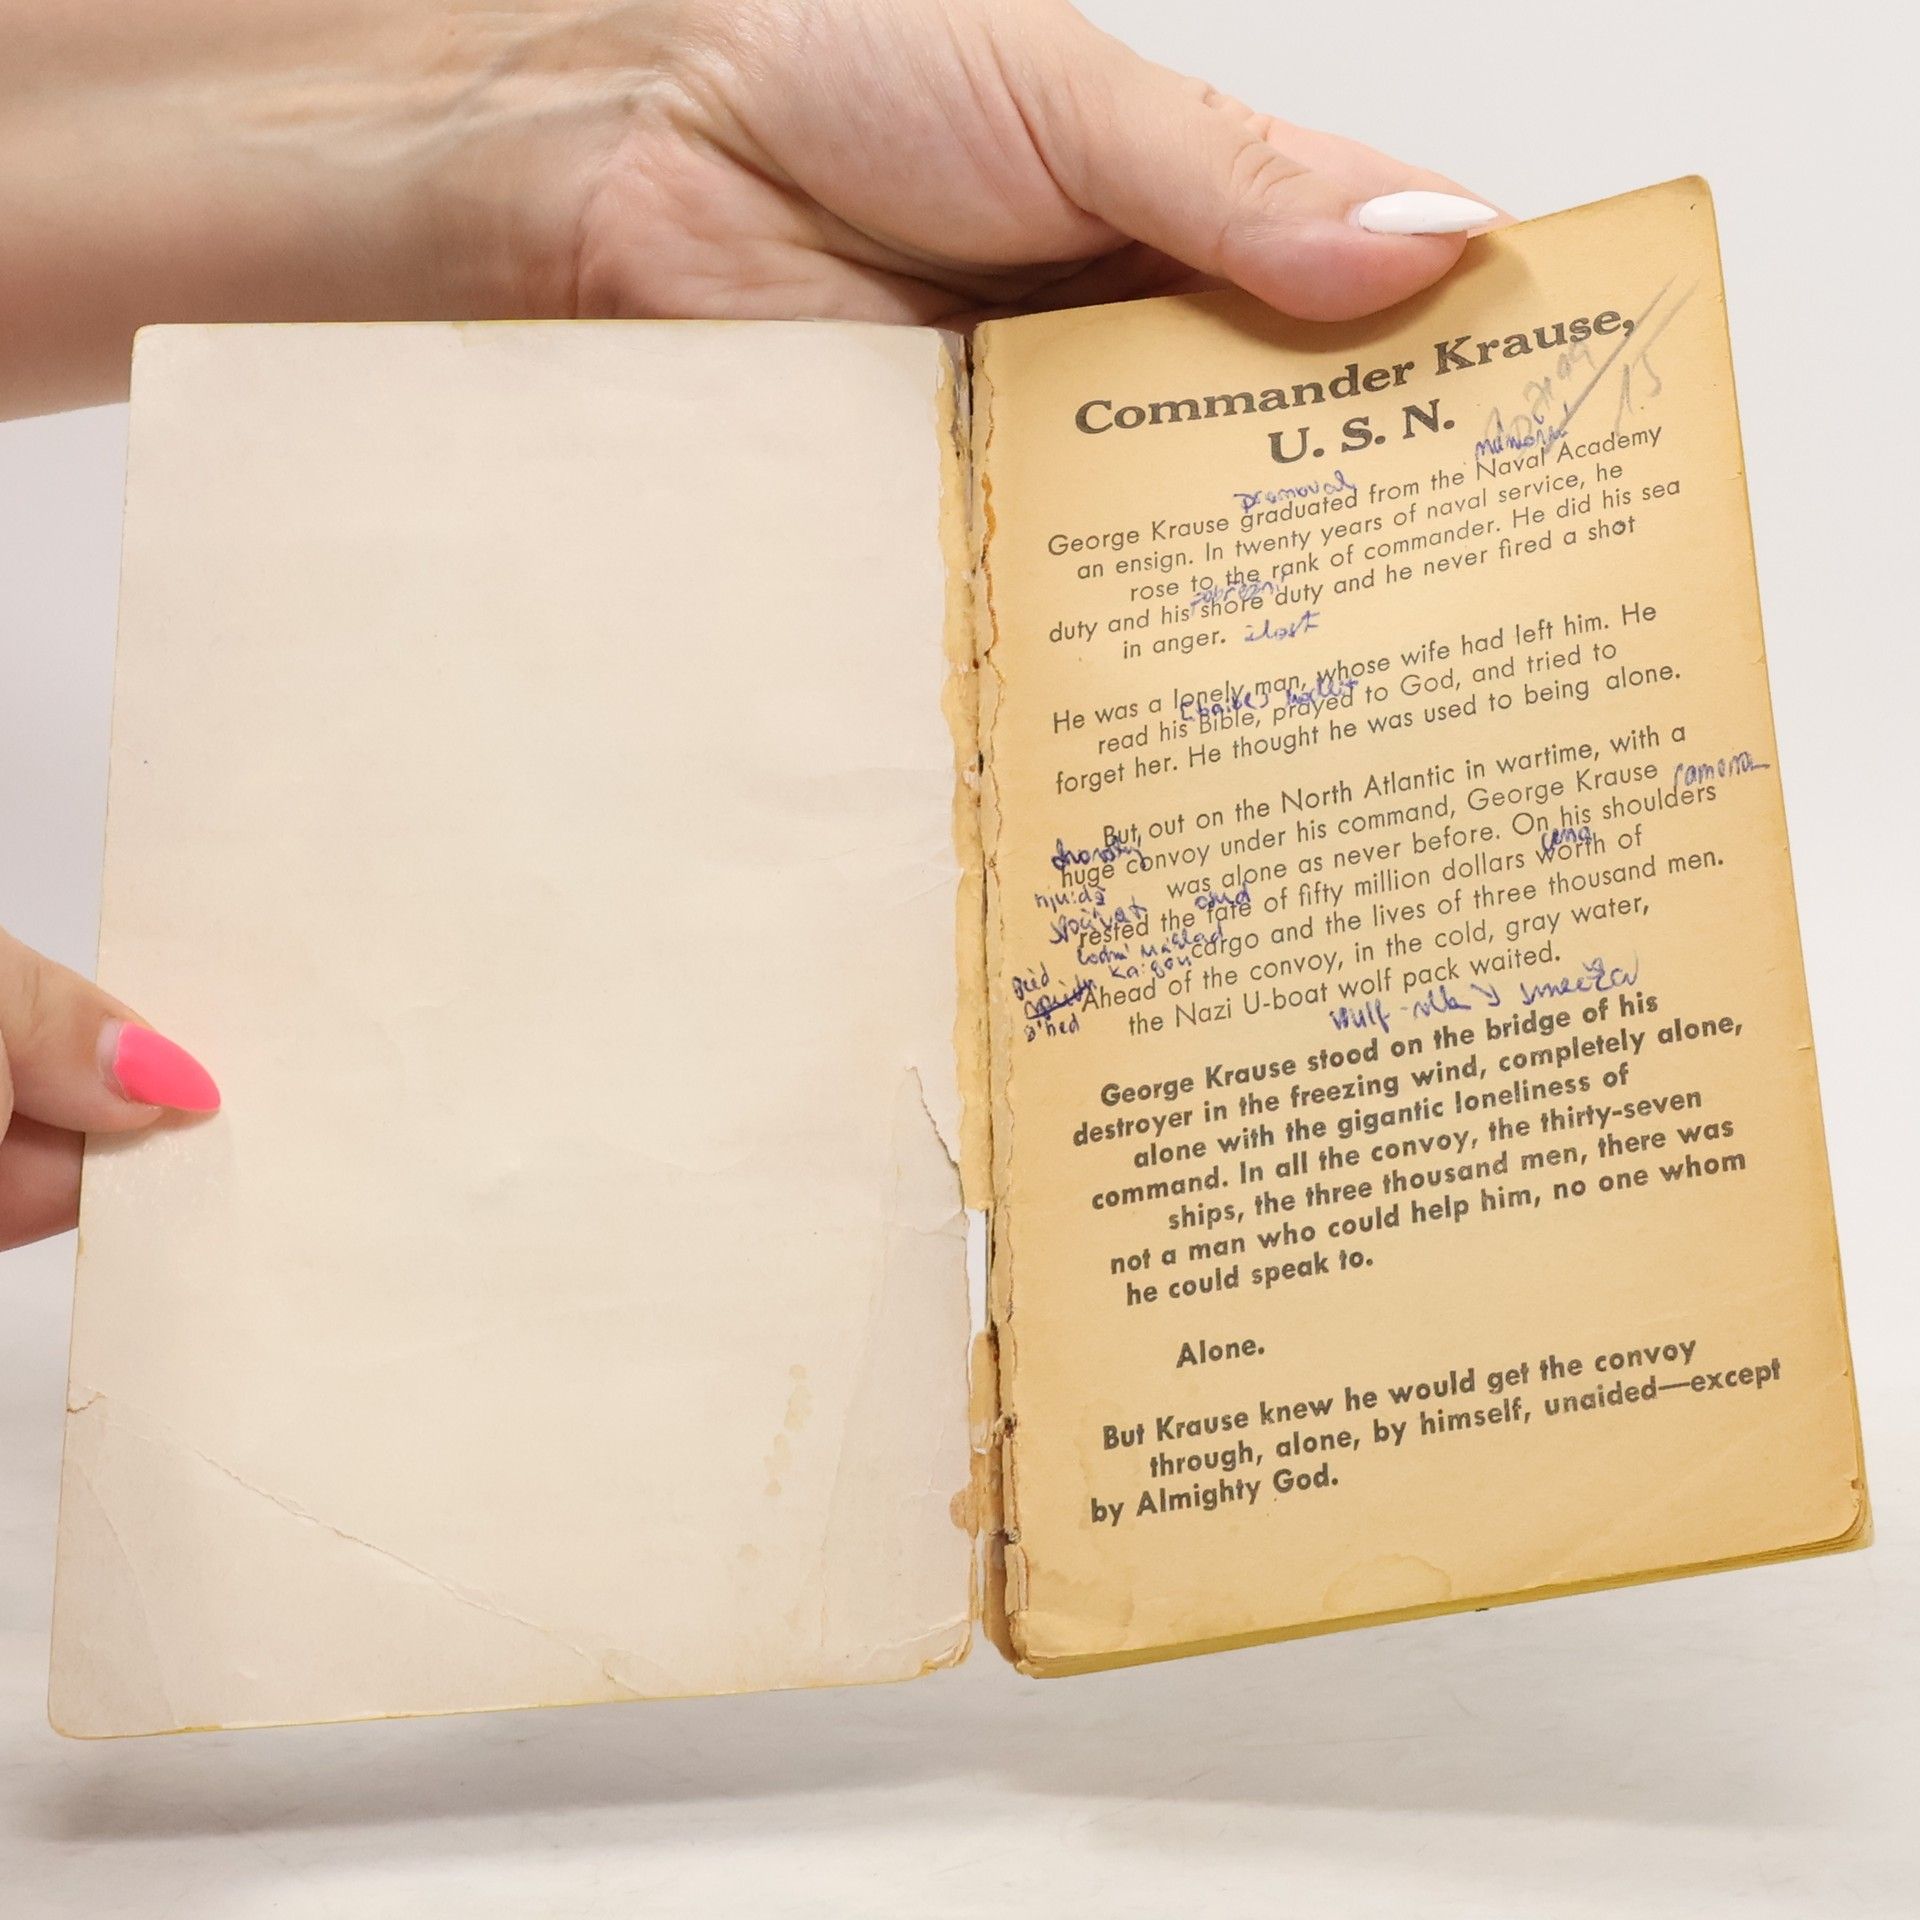 Commander Krause,
U. S. N.
15
námořní
promoval
George Krause graduated from the Naval Academy
an ensign. In twenty years of naval service, he
rose to the rank of commander. He did his sea
duty and his shore duty and he never fired a shot
in anger. zlost
He was a lonely man, whose wife had left him. He
read his Bible, prayed to God, and tried to
forget her. He thought he was used to being alone.
But, out on the North Atlantic in wartime, with a
huge convoy under his command, George Krause ramena
was alone as never before. On his shoulders
cena
rested the fate of fifty million dollars worth of
osud
cargo and the lives of three thousand men.
lodní náklad
Ahead of the convoy, in the cold, gray water,
the Nazi U-boat wolf pack waited.
George Krause stood on the bridge of his
destroyer in the freezing wind, completely alone,
alone with the gigantic loneliness of
command. In all the convoy, the thirty-seven
ships, the three thousand men, there was
not a man who could help him, no one whom
he could speak to.
Alone.
But Krause knew he would get the convoy
through, alone, by himself, unaided—except
by Almighty God.